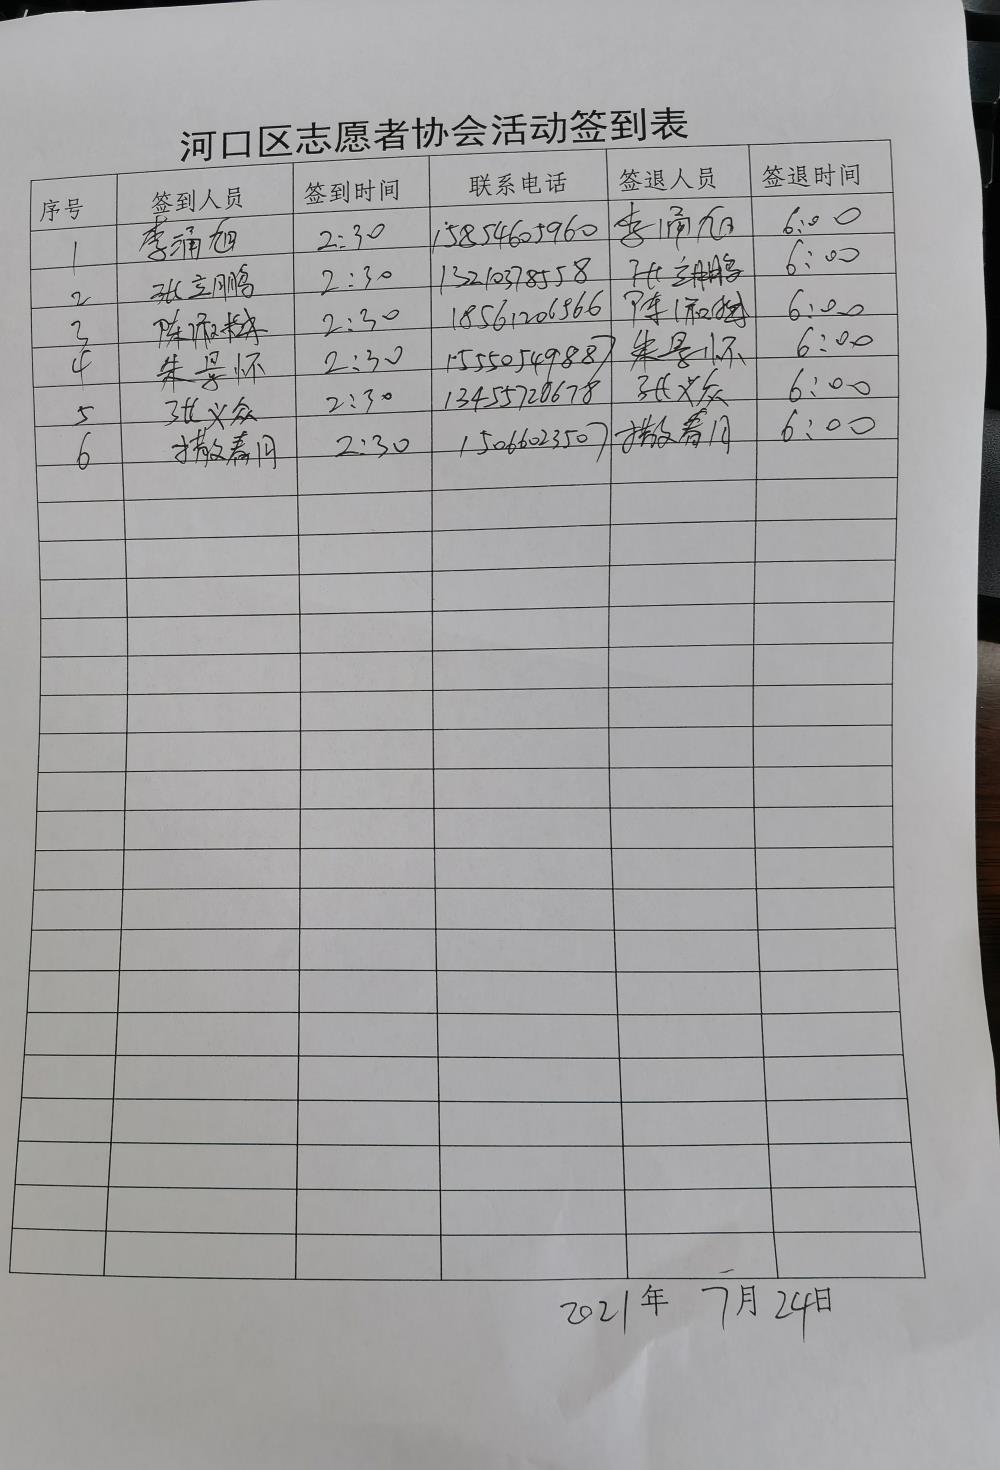 河口区志愿者协会活动签到表
序号 签到人员 签到时间 联系电话 签退人员 签退时间
1 李涌旭 2:30 15854605960 李涌旭 6:00
2 张立鹏 2:30 13210378558 张立鹏 6:00
3 陈淑楼 2:30 18561206566 陈淑楼 6:00
4 朱景怀 2:30 15550549887 朱景怀 6:00
5 张义众 2:30 13455720678 张义众 6:00
6 撖春月 2:30 15066023507 撖春月 6:00
2021年 7月 24日